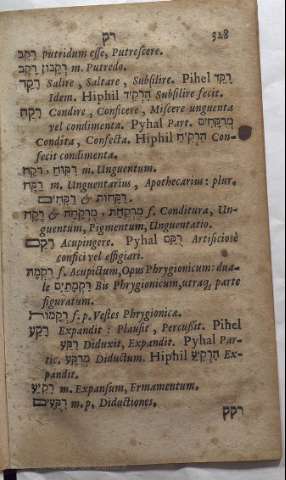 רק 328
רָקַב putridum esse, Putrescere.
רָקָב רִקָּבוֹן m. Putredo.
רָקַד Salire, Saltare, Subsilire. Pihel רִקֵּד
Idem. Hiphil הִרְקִיד Subsilire fecit.
רָקַח Condire, Conficere, Miscere unguenta
vel condimenta. Pyhal Part. מְרֻקָּחִים
Condita, Confecta. Hiphil הִרְקִיחַ Con-
fecit condimenta.
רֶקַח, רִקּוּחַ m. Unguentum.
רַקָּח m. Unguentarius, Apothecarius: plur.
רַקָּחִים & רַקָּחוֹת.
רֹקַח & מִרְקַחַת, מֶרְקָחָה f. Conditura, Un-
guentum, Pigmentum, Unguentatio.
רָקַם Acupingere. Pyhal רֻקַּם Artificiosè
confici vel effigiari.
רִקְמָה f. Acupictum, Opus Phrygionicum: dua-
le רִקְמָתַיִם Bis Phrygionicum, utraq; parte
figuratum.
רְקָמוֹת f. p. Vestes Phrygionicæ.
רָקַע Expandit: Plausit, Percussit. Pihel
רִקַּע Diduxit, Expandit. Pyhal Par-
tic. מְרֻקָּע Diductum. Hiphil הִרְקִיעַ Ex-
pandit.
רָקִיעַ m. Expansum, Firmamentum.
רִקֻּעִים m. p. Diductiones.
רקק